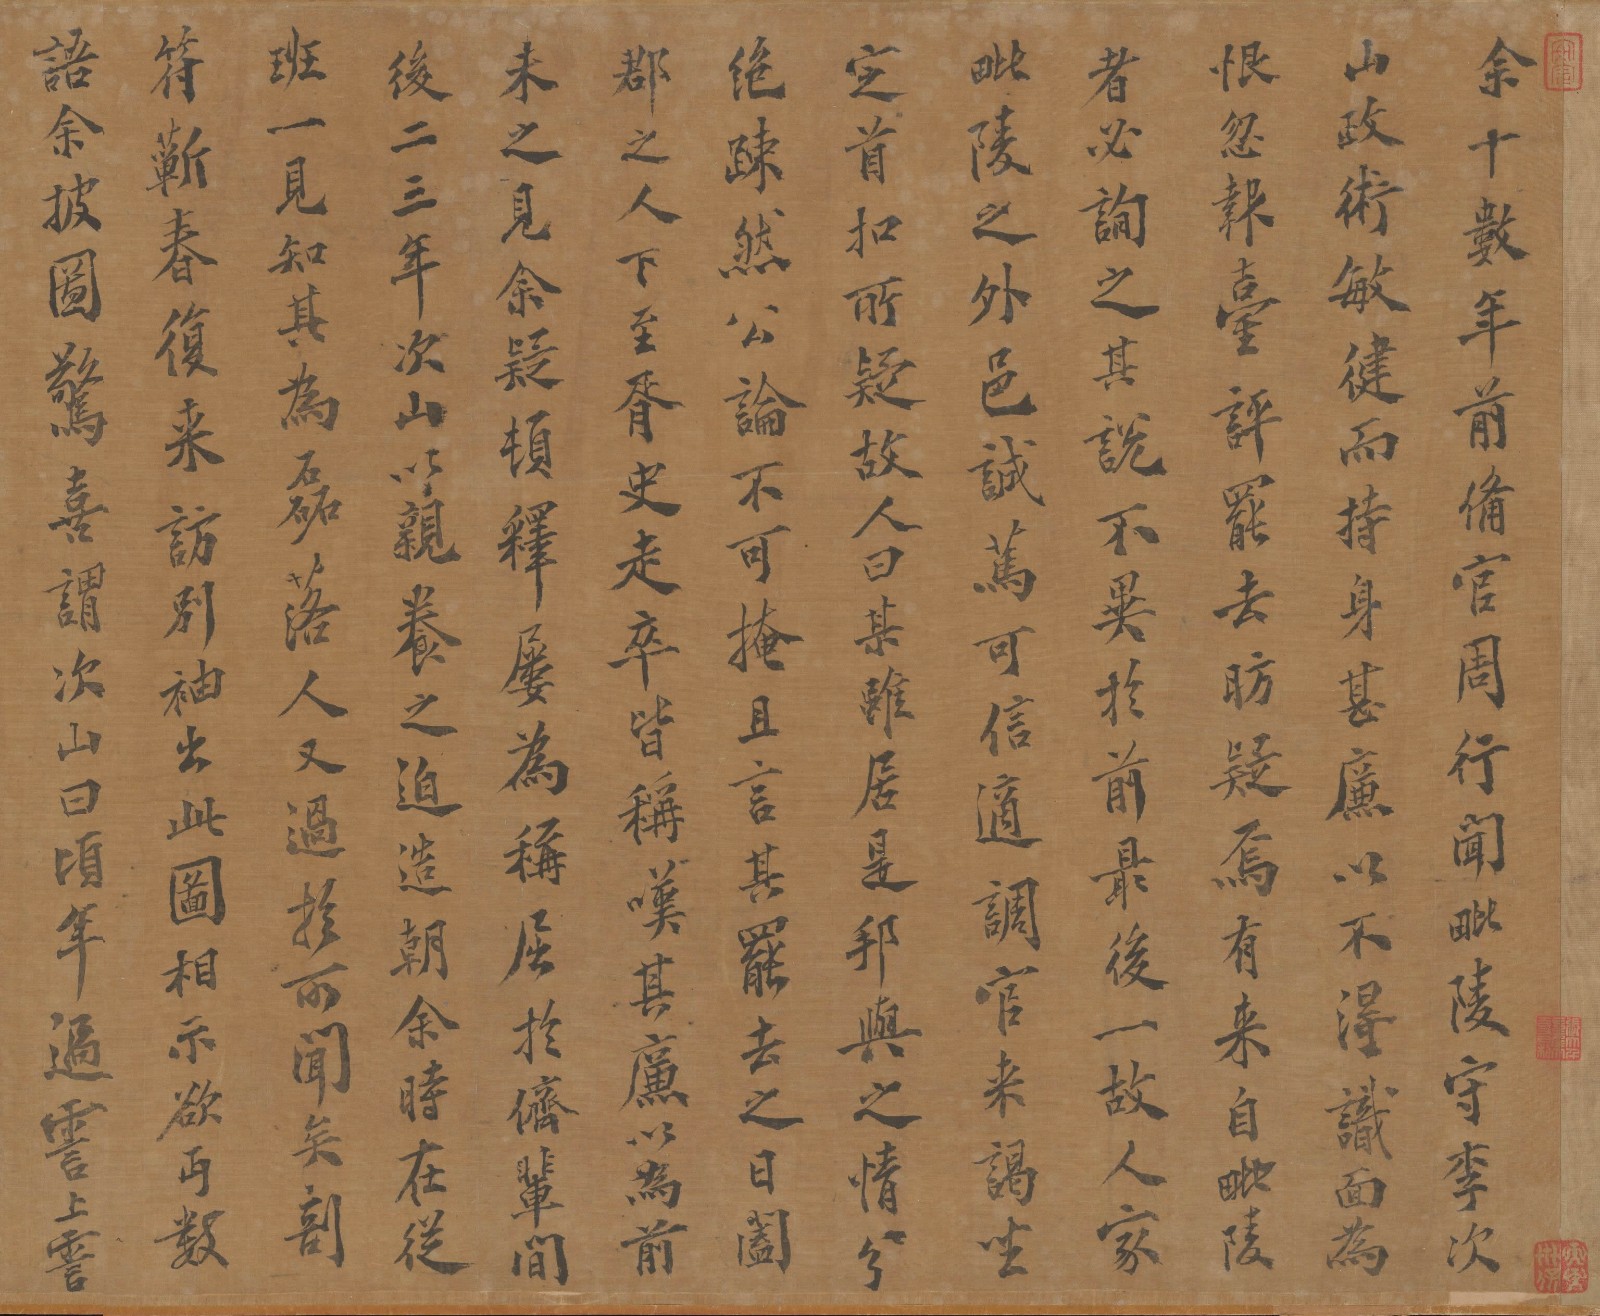 余十數年前備官周行聞毗陵守李次
山政術敏健而持身甚廉以不渥識面為
恨忽報臺評罷去昉疑焉有来自毗陵
者必詢之其説不異於前最後一故人家
毗陵之外邑誠篤可信適調官来謁坐
定首扣所疑故人曰某雖居是邦與之情分
絶踈然公論不可掩且言其罷去之日闔
郡之人下至胥史走卒皆稱嘆其廉以為前
未之見余疑頓釋屢為稱屈於儕輩間
後二三年次山以親養之迫造朝余時在從
班一見知其為磊落人又過於所聞矣剖
符蘄春復来訪別袖出此圖相示欲丐數
語余披圖驚喜謂次山曰頃年過霅上霅